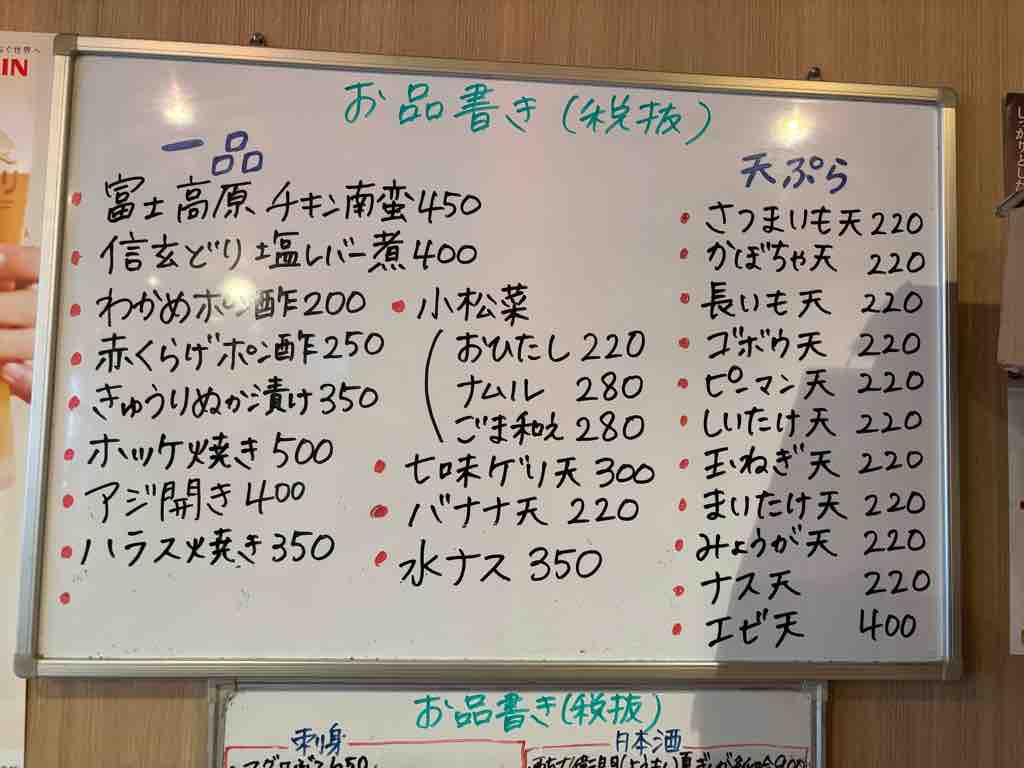 お品書き(税抜)
一品
富士高原チキン南蛮450
信玄どり塩レバー煮400
わかめポン酢200
赤くらげポン酢250
きゅうりぬか漬け350
ホッケ焼き500
アジ開き400
ハラス焼き350
小松菜
おひたし220
ナムル 280
ごま和え280
七味ゲソ天300
バナナ天 220
水ナス 350
天ぷら
さつまいも天220
かぼちゃ天 220
長いも天 220
ゴボウ天 220
ピーマン天 220
しいたけ天 220
玉ねぎ天 220
まいたけ天 220
みょうが天 220
ナス天 220
エビ天 400
お品書き(税抜)
刺身
日本酒